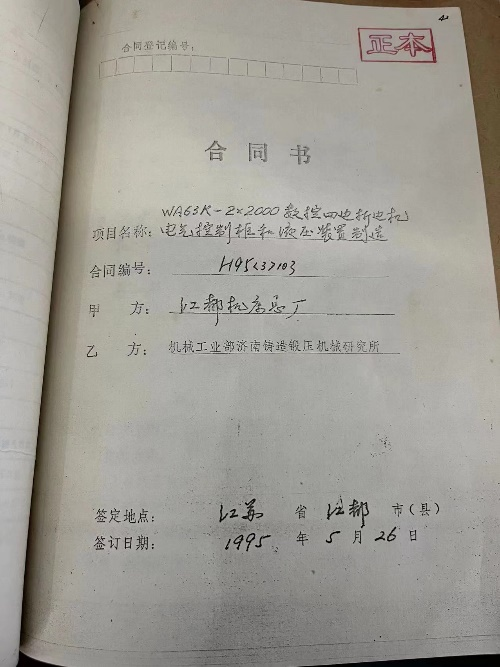 正本
合同登记编号:
合同书
WA63K-2×2000 数控四电折电机
项目名称: 电气控制柜和液压装置制造
合同编号: H95c37103
甲方: 江都机床总厂
乙方: 机械工业部济南铸造锻压机械研究所
签定地点: 江苏 省 江都 市(县)
签订日期: 1995 年 5 月 26 日